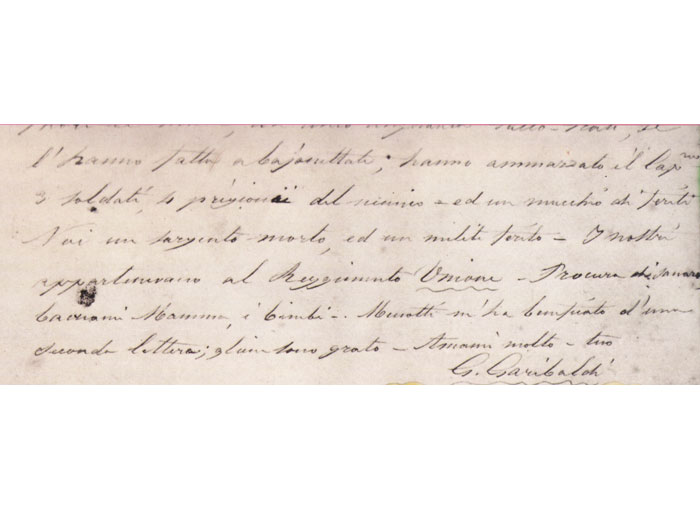 l'hanno fatto a bajonettate; hanno ammazzato il Cap.no
3 soldati, 4 prigionieri del nemico - ed un mucchio di feriti
Noi un sargento morto, ed un milite ferito - I nostri
appartenevano al Reggimento Unione - Procura di
baciami Mamma, i bimbi -. Menotti m'ha d'una
seconda lettera; gliene sono grato - Amami molto - tuo
G. Garibaldi